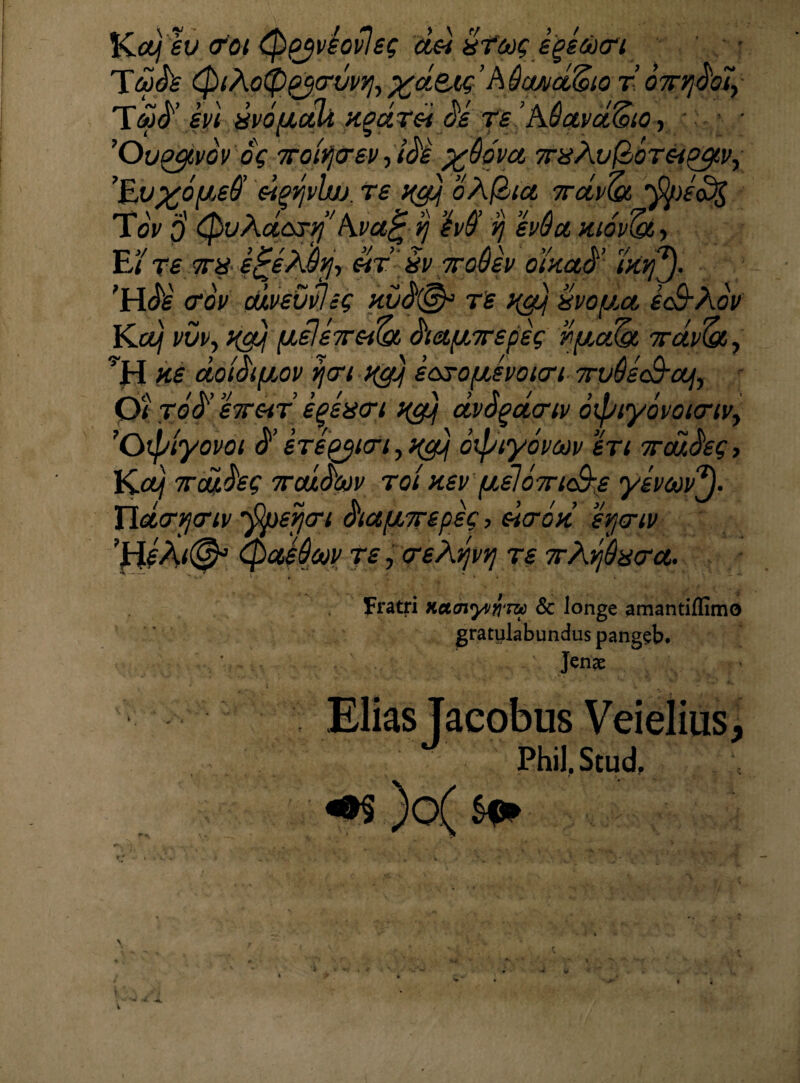 Καὶ ἐν σοὶ φρονέοντες ἀεὶ οὕτως ἐρέωσι
Τῶδε φιλοφροσύνη, χάρις Ἀθανάτοιο τ' ὀπηδοῖ,
Τῶδ' ἐνὶ οὐνόματι κράτει δέ τε Ἀθανάτοιο,
Ὀυρανὸν ὃς ποίησεν, ἰδὲ χθόνα πουλυβότειραν,
Ἐυχόμεθ' εἰρήνην τε καὶ ὄλβια πάντα γενέσθαι
Τὸν δὲ φυλάσση Ἄναξ ἢ ἔνθ' ἢ ἔνθα κιόντα,
Εἴ τε που ἐξέλθη, εἴτ' οὖν ποθὲν οἴκαδ' ἵκηται.
Ἠδὲ σὸν αἰνεῦντες κῦδος τε καὶ οὔνομα ἐσθλὸν
Καὶ νῦν, καὶ μετέπειτα διαμπερὲς ἤματα πάντα,
Ἦ κε ἀοίδιμον ᾖσι καὶ ἐσσομένοισι πυθέσθαι,
Οἳ τόδ' ἔπειτ' ἐρέουσι καὶ ἀνδράσιν ὀψιγόνοισιν,
Ὀψίγονοι δ' ἑτέροισι, καὶ ὀψιγόνων ἔτι παῖδες,
Καὶ παῖδες παίδων τοί κεν μετόπισθε γένωνται.
Πάσησιν γενεῆσι διαμπερὲς, εἰσόκ' ἔησιν
Ἠέλιος φαέθων τε, σελήνη τε πλήθουσα.
Fratri κασιγνήτῳ & longe amantissimo
gratulabundus pangeb.
Jenæ
Elias Jacobus Veielius,
Phil. Stud.
)o(